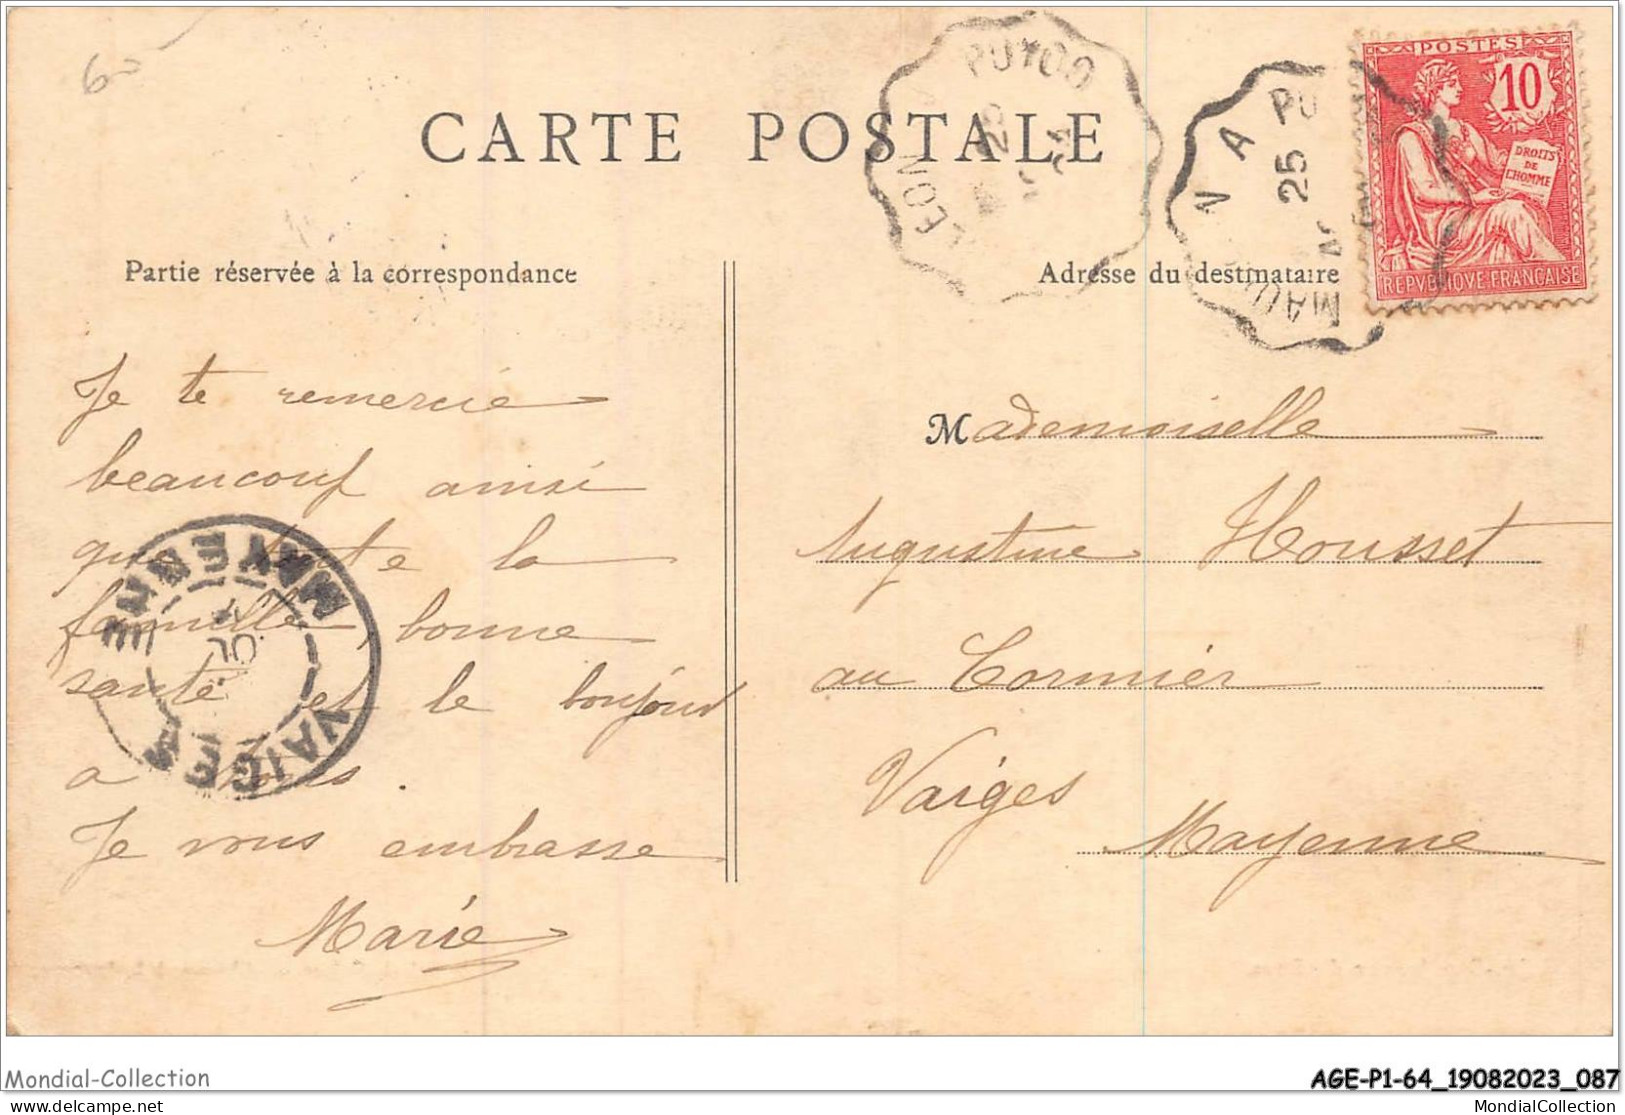 60
CARTE POSTALE
PUYOO
LEON
25
04
NA PU
25
MAU
POSTES
10
DROITS
DE
L'HOMME
REPVBLIQVE FRANÇAISE
Partie réservée à la correspondance
Je te remercie
beaucoup ainsi
que toute la
famille, bonne
santé et le bonjour
a tous.
Je vous embrasse
Marie
MAYENNE
VAIGES
Adresse du destinataire
Mademoiselle
Augustine Housset
au Cormier
Vaiges
Mayenne
Mondial-Collection
AGE-P1-64_19082023_087
MondialCollection